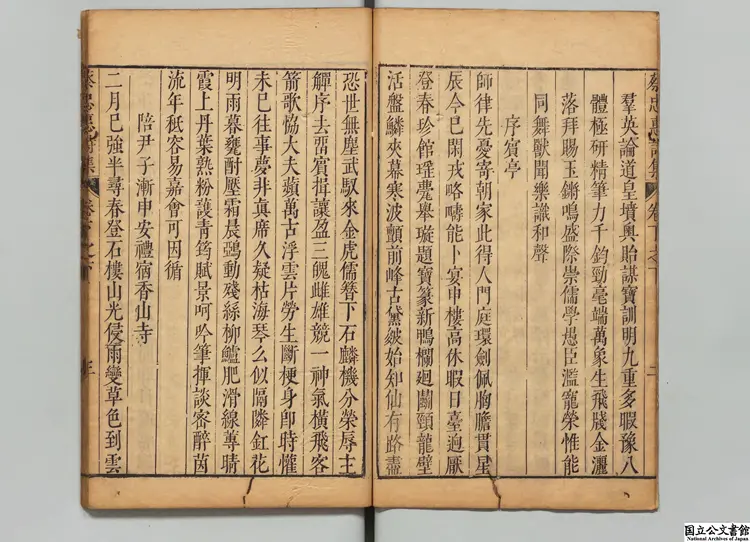 蔡忠惠詩集 卷下之下 二
羣英論道皇墳奧貽謀寶訓明九重多暇豫八
體極研精筆力千鈞勁毫端萬象生飛牋金灑
落拜賜玉鏘鳴盛際崇儒學愚臣濫寵榮惟能
同舞獸聞樂識和聲
序賓亭
師律先憂寄朝家此得人門庭環劍佩胸膽貫星
辰今巳閑戎略疇能卜宴申樓高休暇日臺迥厭
登春珍館瑶甍舉璇題寶篆新鴨欄廻鬭頸龍壁
活盤鱗夾幕寒波顫前峰古黛皴始知仙有路盡
恐世無塵武馭來金虎儒簪下石麟機分榮辱主
觶序去畱賓揖讓盈三魄雌雄競一神氣橫飛客
箭歌恊大夫蘋萬古浮雲片勞生斷梗身卽時懽
未巳往事夢非真席久疑枯海琴么似隔隣釭花
明雨暮甕酎壓霜晨弱動殘絲柳鱸肥滑線蓴晴
霞上丹葉熟粉護青筠賦景呵吟筆揮談客醉茵
流年秪容易嘉會可因循
陪尹子漸申安禮宿香山寺
二月巳強半尋春登石樓山光侵雨變草色到雲
蔡忠惠詩集 卷下之下 三
国立公文書館
National Archives of Japan